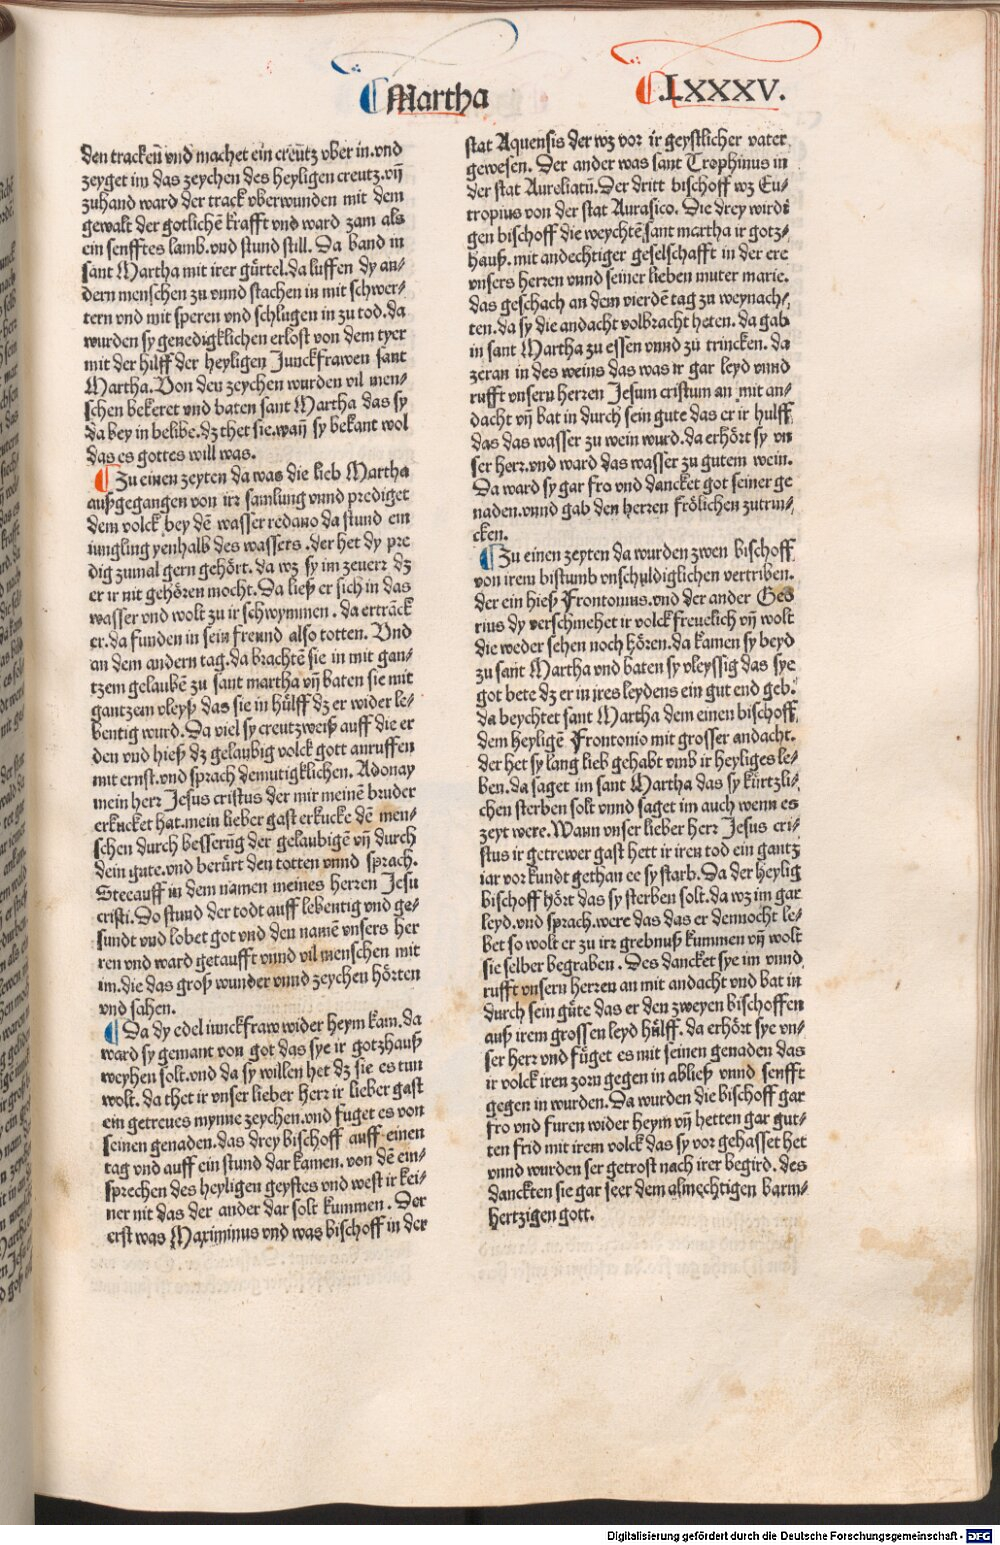 Martha
.LXXXV.
den tracken̄ vnd machet ein creűtz vber in.vnd
zeyget im das zeychen des heyligen creutz.vn̄
zuhand ward der track vberwunden mit dem
gewalt der gotlichē krafft vnd ward zam als
ein senfftes lamb.vnd stund still. Da band in
sant Martha mit irer gürtel.da luffen dy an⸗
dern menschen zu vnnd stachen in mit schwer⸗
tern vnd mit speren vnd schlugen in zu tod.da
wurden sy genedigklichen erlost von dem tyer
mit der hilff der heyligen Junckfrawen sant
Martha.Von den zeychen wurden vil men⸗
schen bekeret vnd baten sant Martha das sy
da bey in belibe.dz thet sie.wan̄ sy bekant wol
das es gottes will was.
Zu einen zeyten da was die lieb Martha
außgegangen von irꝛ samlung vnnd prediget
dem volck bey dē wasser redano da stund ein
iungling yenhalb des wassers.der het dy pre
dig zumal gern gehört. da wz sy im zeuerꝛ dz
er ir nit gehören mocht. Da ließ er sich in das
wasser vnd wolt zu ir schwymmen. da ertrāck
er.da funden in sein freund also totten. Vnd
an dem andern tag.da brachtē sie in mit gan⸗
tzem gelaubē zu sant martha vn̄ baten sie mit
gantzem vleyß das sie in hülff dz er wider le⸗
bentig wurd. Da viel sy creutzweiß auff die er
den vnd hieß dz gelaubig volck gott anruffen
mit ernst.vnd sprach demutigklichen. Adonay
mein herr Jesus cristus der mir meinē bruder
erkucket hat.mein lieber gast erkucke dē men⸗
schen durch besserūg der gelaubigē vn̄ durch
dein gute.vnd berürt den totten vnnd sprach.
Steeauff in dem namen meines herren Jesu
cristi. Do stund der todt auff lebentig vnd ge⸗
sundt vnd lobet got vnd den namē vnsers her
ren vnd ward getaufft vnnd vil menschen mit
im.die das groß wunder vnnd zeychen hörten
vnd sahen.
Da dy edel iunckfraw wider heym kam.da
ward sy gemant von got das sye ir gotzhauß
weyhen solt.vnd da sy willen het dz sie es tun
wolt. da thet ir vnser lieber herꝛ ir lieber gast
ein getreues mynne zeychen.vnd fuget es von
seinen genaden.das drey bischoff auff einen
tag vnd auff ein stund dar kamen. von dē ein⸗
sprechen des heyligen geystes vnd west ir kei⸗
ner nit das der ander dar solt kummen. Der
erst was Maximinus vnd was bischoff in der
stat Aquensis der wz vor ir geystlicher vater
gewesen. Der ander was sant Trophinus in
der stat Aureliatū.Der dritt bischoff wz Eu⸗
tropius von der stat Aurasico. Die drey wirdi
gen bischoff die weychtē sant martha ir gotz⸗
hauß. mit andechtiger geselschafft in der ere
vnsers herren vnnd seiner lieben muter marie.
das geschach an dem vierdē tag zu weynach⸗
ten.da sy die andacht volbracht heten. da gab
in sant Martha zu essen vnnd zů trincken. da
zeran in des weins das was ir gar leyd vnnd
rufft vnsern herꝛen Jesum cristum an mit an⸗
dacht vn̄ bat in durch sein gute das er ir hulff
das das wasser zu wein wurd.da erhört sy vn
ser herꝛ.vnd ward das wasser zu gutem wein.
Da ward sy gar fro vnd dancket got seiner ge
naden.vnnd gab den herren frölichen zutrin⸗
cken.
Zu einen zeyten da wurden zwen bischoff
von irem bistumb vnschuldiglichen vertriben.
der ein hieß Frontonius.vnd der ander Geo
rius dy verschmehet ir volck freuelich vn̄ wolt
die weder sehen noch hören.da kamen sy beyd
zu sant Martha vnd baten sy vleyssig das sye
got bete dz er in ires leydens ein gut end geb.
da beychtet sant Martha dem einen bischoff
dem heyligē Frontonio mit grosser andacht.
der het sy lang lieb gehabt vmb ir heyliges le⸗
ben.da saget im sant Martha das sy kürtzli⸗
chen sterben solt vnnd saget im auch wenn es
zeyt were.Wann vnser lieber herꝛ Jesus cri⸗
stus ir getrewer gast hett ir iren tod ein gantz
iar vor kundt gethan ee sy starb. Da der heylig
bischoff hört das sy sterben solt.da wz im gar
leyd.vnd sprach.were das das er dennocht le⸗
bet so wolt er zu irꝛ grebnuß kummen vn̄ wolt
sie selber begraben. Des dancket sye im vnnd
rufft vnsern herren an mit andacht vnd bat in
durch sein gůte das er den zweyen bischoffen
auß irem grossen leyd hůlff. da erhört sye vn⸗
ser herꝛ vnd fůget es mit seinen genaden das
ir volck iren zorn gegen in abließ vnnd senfft
gegen in wurden.Da wurden die bischoff gar
fro vnd furen wider heym vn̄ hetten gar gut⸗
ten frid mit irem volck das sy vor gehasset het
vnnd wurden ser getrost nach irer begird. des
danckten sie gar seer dem almechtigen barm⸗
hertzigen gott.
Digitalisierung gefördert durch die Deutsche Forschungsgemeinschaft - DFG